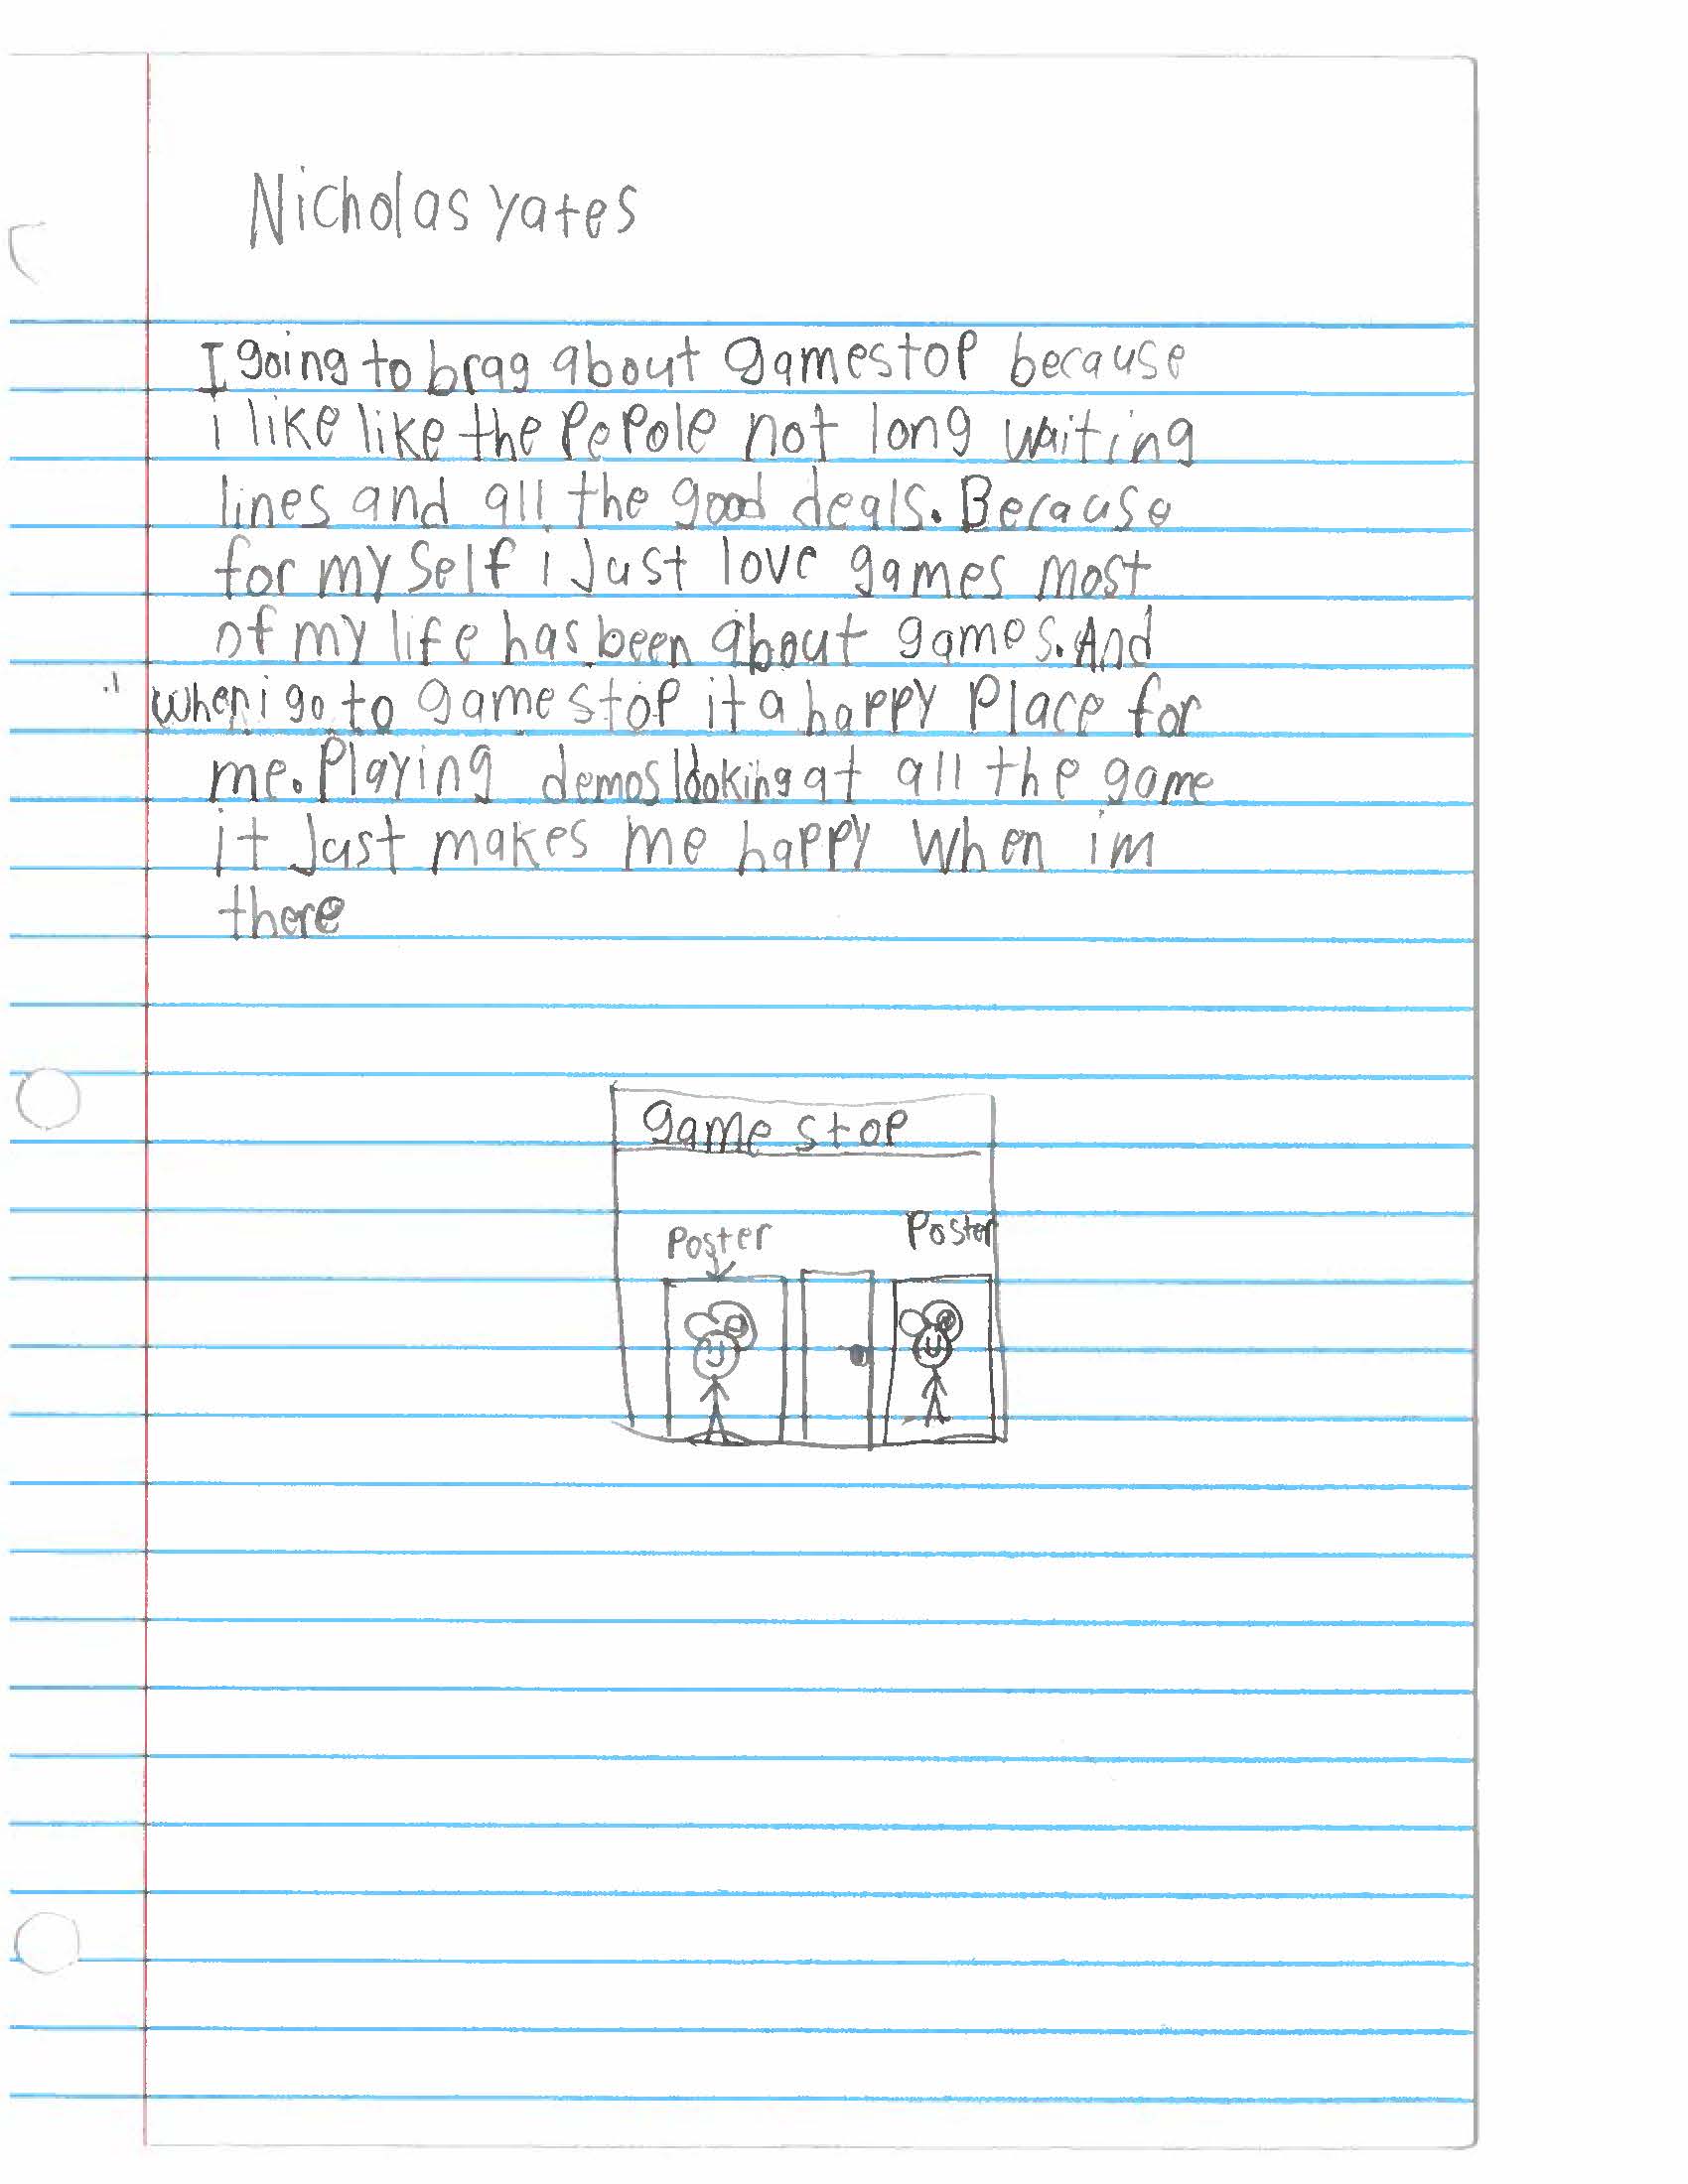 Nicholas yates
I going to brag about gamestop because
i like like the PePole not long waiting
lines and all the good deals. Because
for my self i Just love games most
of my life has been about games. And
when i go to game stop it a happy Place for
me. Playing demos looking at all the game
it Just makes me happy when im
there
game stop
Poster
Poster